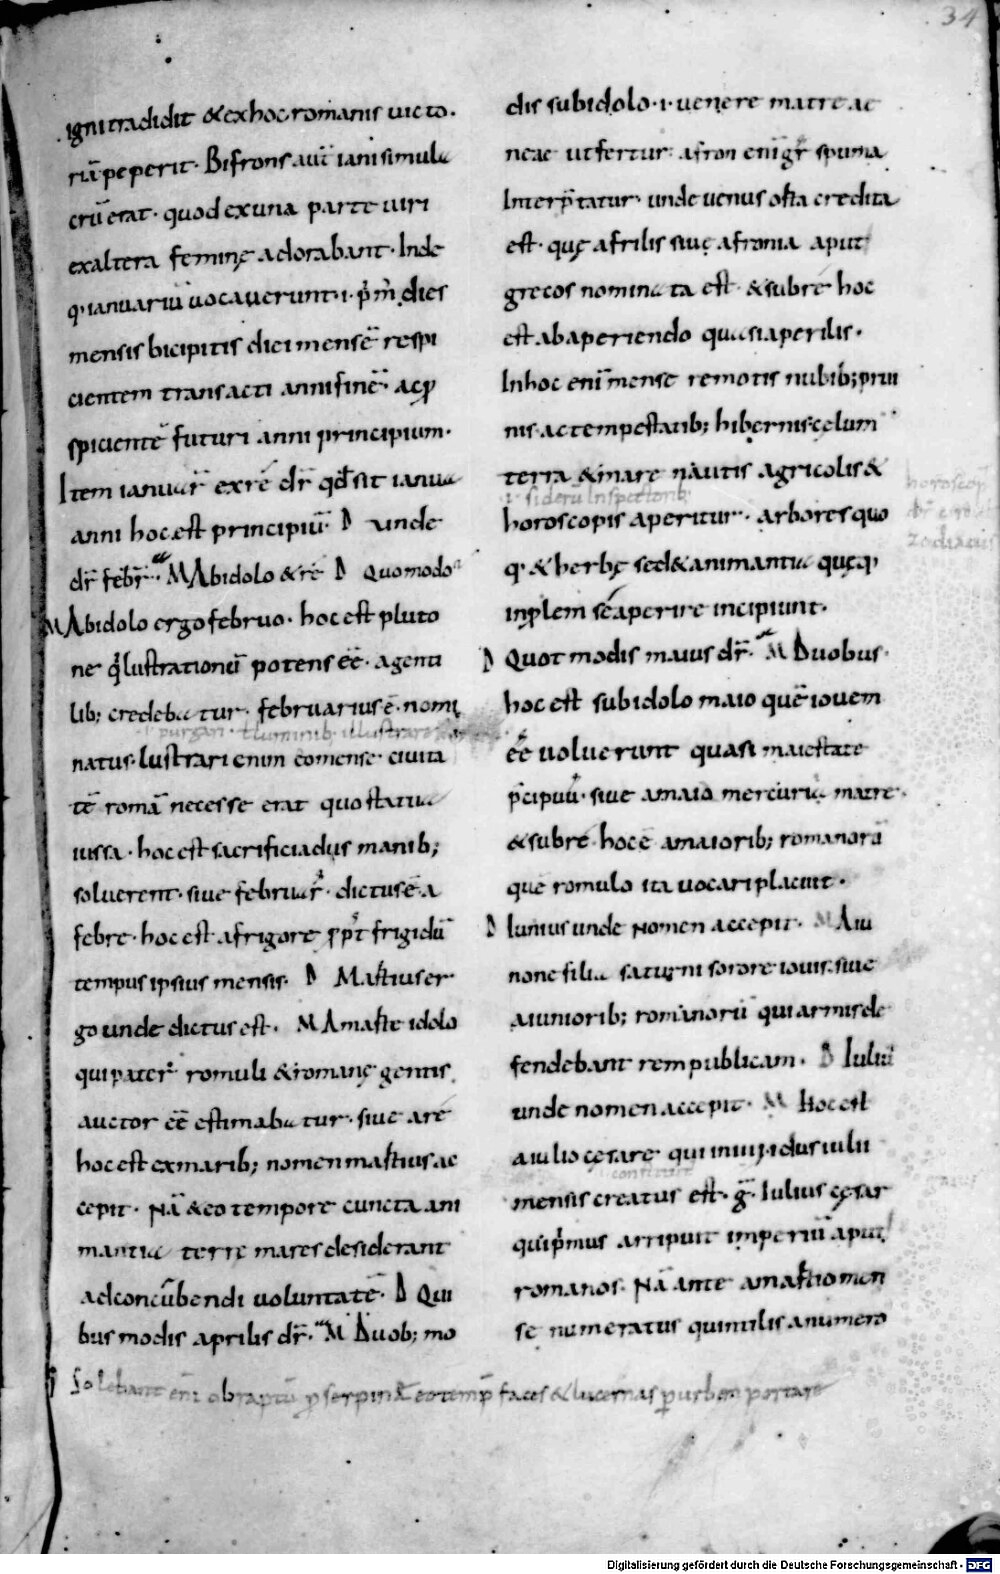 34
igni tradidit & ex hoc romanis victo.
riā peperit. Bifrons aut̄ iani simula
crū erat. quod ex una parte viri
ex altera feminę adorabant. Inde
q; ianuariū vocaverunt .i. p̄m̄ dies
mensis bicipitis dici mensē respi
cientem transacti anni finē. ac ꝓ
spicientē futuri anni principium.
Item ianuar̄ ex rē dr̄ qd̄ sit ianua
anni hoc est principiū. D unde
dr̄ febr̄. M Ab idolo & rē D Quomodo
M Ab idolo ergo februo. hoc est pluto
ne q̄ lustrationū potens eē. a genti
lib; credebatur. februarius ē nomi
.i. purgari. ł luminib; illustrare
natus. lustrari enim eo mense civita
tē romā necesse erat quo statua
iussa. hoc est sacrificia diis manib;
solverent. sive februar̄. dictus ē a
febre. hoc est a frigore ꝓpt̄ frigidū
tempus ipsius mensis. D Martius er
go unde dictus est. M A marte idolo
qui pater romuli & romanę gentis
auctor eē estimabatur. sive a rē
hoc est ex marib; nomen martius ac
cepit. Nā & eo tempore cuncta ani
mantia terrę mares desiderant
ad concūbendi voluntatē. D Qui
bus modis aprilis dr̄. M Duob; mo
dis sub idolo .i. venere matre ae
neae ut fertur. afron enī gr̄ spuma
Interp̄tatur. unde venus orta credita
est. quę afrilis sive afronia aput
grecos nominata est. & sub rē hoc
est ab aperiendo quasi aperilis.
In hoc enī mense remotis nubib; prui
nis ac tempestatib; hibernis cęlum
terra & mare nautis agricolis &
.i. siderū Inspectorib;
horoscopis aperitur. arbores quo
q; & herbę sed & animantia quęq;
in ꝓlem se aperire incipiunt.
D Quot modis maius dr̄. M Duobus.
hoc est sub idolo maio quē iovem
eē voluerunt quasi maiestate
p̄cipuū. sive a maia mercurii matre.
& sub rē hoc ē a maiorib; romanorū
quē romulo ita vocari placuit.
D Iunius unde nomen accepit. M A iu
none filia saturni sorore iovis. sive
a iuniorib; romanorū qui armis de
fendebant rem publicam. D Iuliu
unde nomen accepit. M Hoc est
a iulio cęsare. qui in iiij. idus iulii
constituit
mensis creatus est. gͣ. Iulius cęsar
qui p̄mus arripuit imperiū aput
romanos. Nā ante a martio men
se numeratus quintilis a numero
horoscop
dr̄
zodiacus
solebant enī ob raptū ꝓserpinę eo temp̄ faces & lucernas ꝑ urbem portare
Digitalisierung gefördert durch die Deutsche Forschungsgemeinschaft - DFG